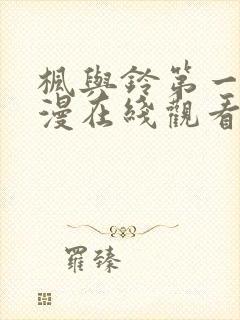 楓與鈴第一
漫在綫觀看
羅臻